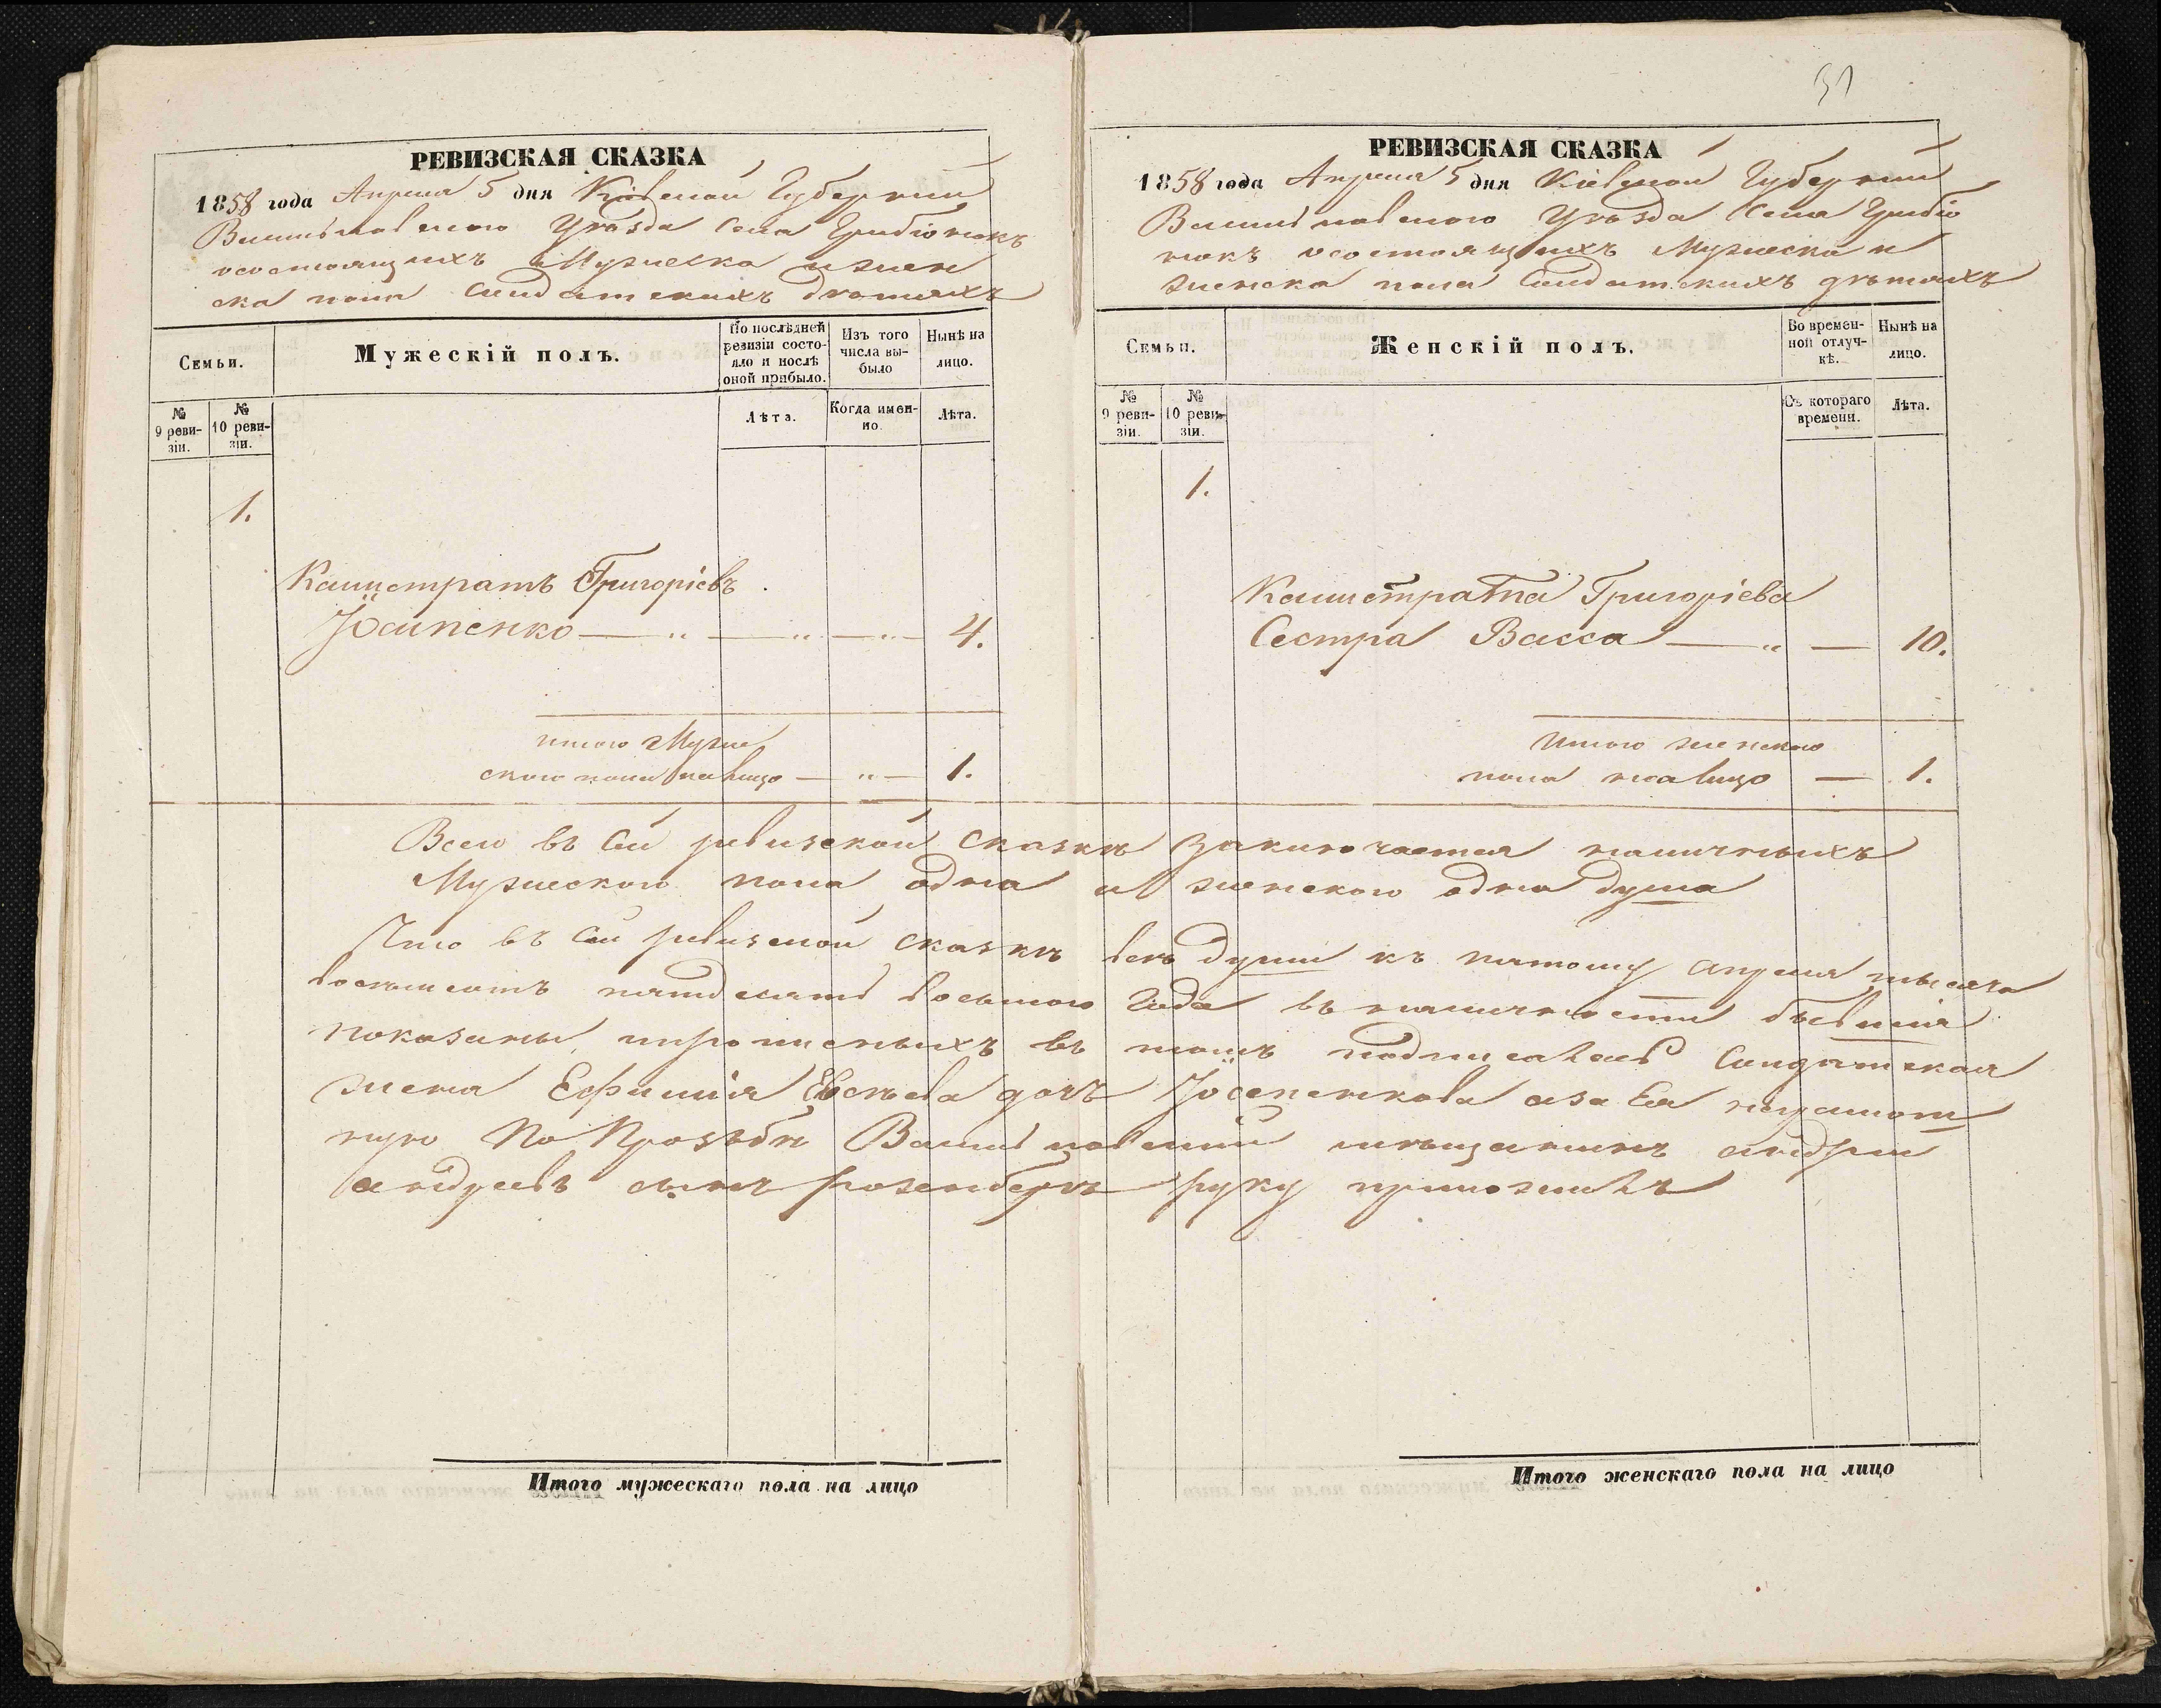 РЕВИЗСКАЯ СКАЗКА
1858 года Апреля 5 дня Кіевской Губерніи
Васильковского Уезда Села
осостоящихъ Мужеска и жен
ска пола Солдатскихъ дѣтяхъ
Семьи.
Мужескій полъ.
По послѣдней ревизіи состояло и послѣ оной прибыло.
Изъ того числа выбыло
Нынѣ на лицо.
№ 9 ревизіи.
№ 10 ревизіи.
Лѣта.
Когда именно.
Лѣта.
1.
Калистратъ Григоріевъ
Іосипенко — „ — „ — „ — 4.
итого Муже
ского пола налицо — „ — 1.
Итого мужескаго пола на лицо
31
РЕВИЗСКАЯ СКАЗКА
1858 года Апреля 5 дня Кіевской Губерніи
Васильковского Уезда Села
осостоящихъ Мужеска и
женска пола Солдатскихъ дѣтяхъ
Семьи.
Женскій полъ.
Во временной отлучкѣ.
Нынѣ на лицо.
№ 9 ревизіи.
№ 10 ревизіи.
Съ котораго времени.
Лѣта.
1.
Калистрата Григоріева
Сестра Васса — „ — 10.
Итого женского
пола налицо — 1.
Всего въ сей ревизской сказкѣ заключается наличныхъ
Мужеского пола одна и женского одна душа
Что въ сей ревизской сказкѣ всѣ души къ пятому апреля тысяча
восемьсотъ пятдесятъ восьмого Года въ наличности бывшія
показаны, и въ томъ подписалась Солдатская
жена Ефимія дочъ Іосепенкова аза Ея неграмот
ную По Прозьбѣ Васильковский мѣщанинъ андрей
андреевъ сынъ розенбергъ руку приложилъ
Итого женскаго пола на лицо